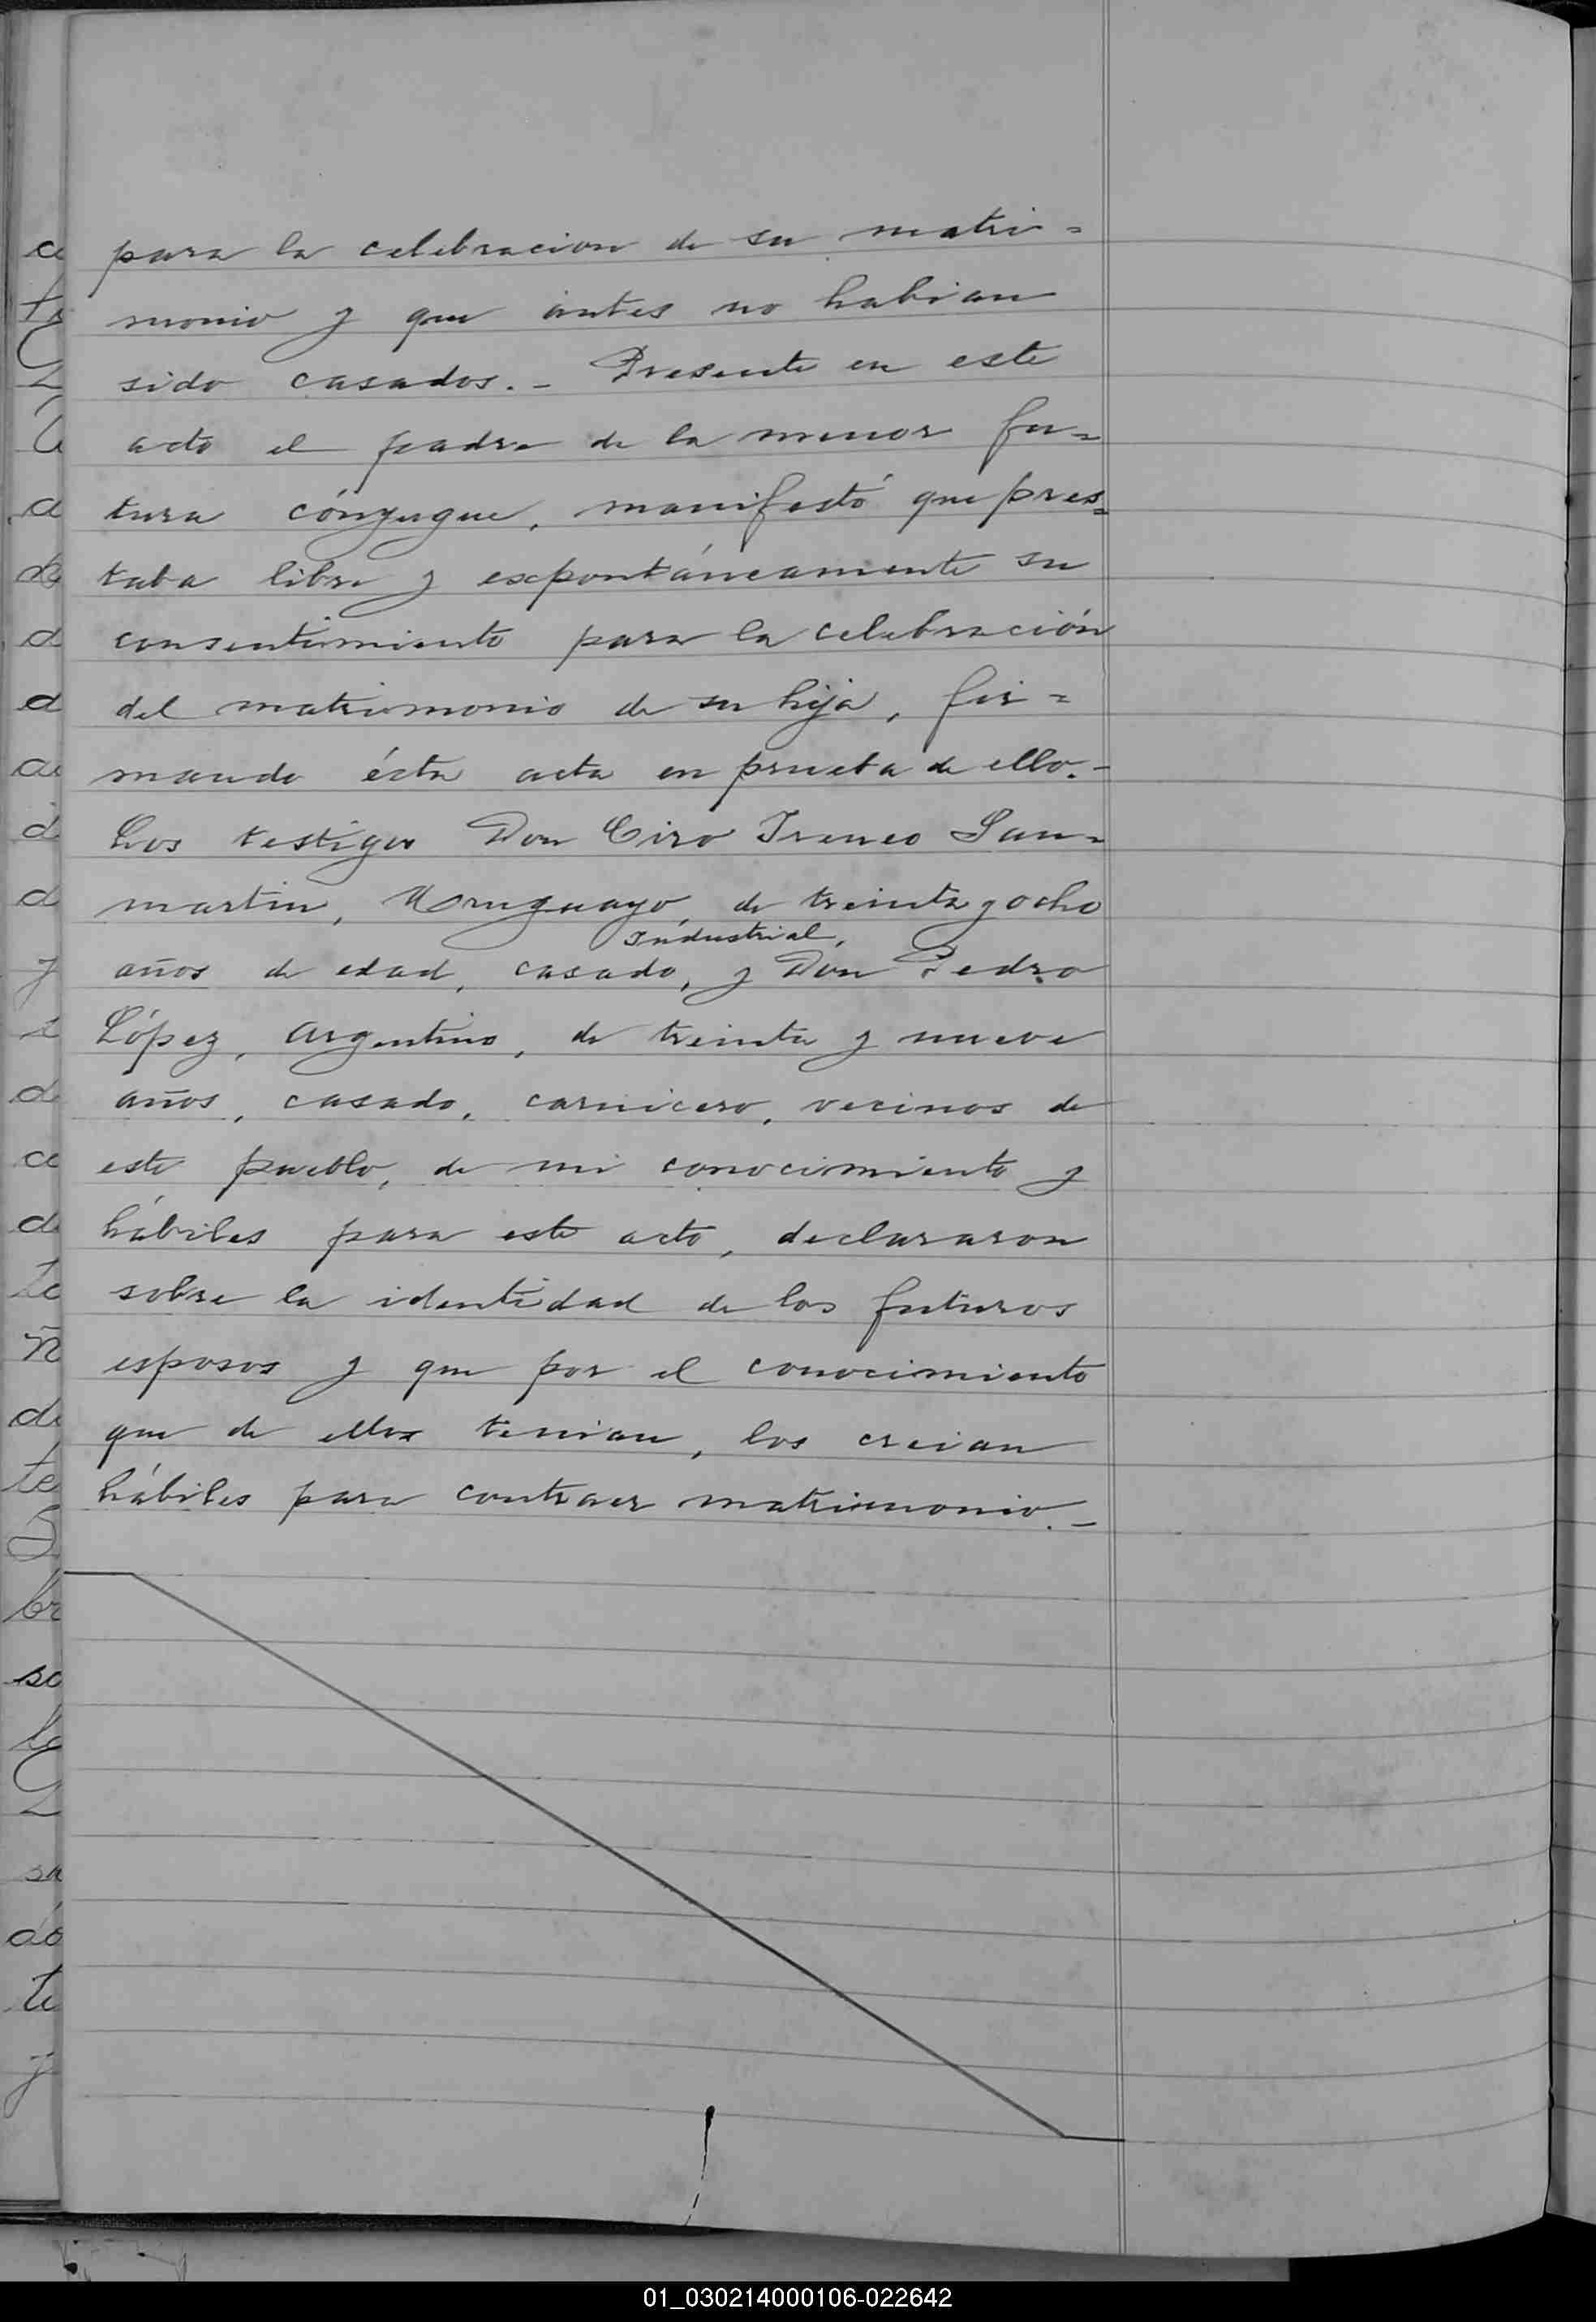 para la celebracion de su matri=
monio y que ántes no habian
sido casados.- Presente en este
acto el padre de la menor fu=
tura cónyugue, manifestó que pres=
taba libre y expontáneamente su
consentimiento para la celebración
del matrimonio de su hija, fir=
mando ésta acta en prueba de ello.-
Los testigos Don Ciro Ireneo San=
martin, Uruguayo, de treinta y ocho
Industrial,
años de edad, casado, y Don Pedro
López, Argentino, de treinta y nueve
años, casado, carnicero, vecinos de
este pueblo, de mi conocimiento y
hábiles para este acto, declararon
sobre la identidad de los futuros
esposos y que por el conocimiento
que de ellos tenian, los creian
hábiles para contraer matrimonio.-
01_030214000106-022642